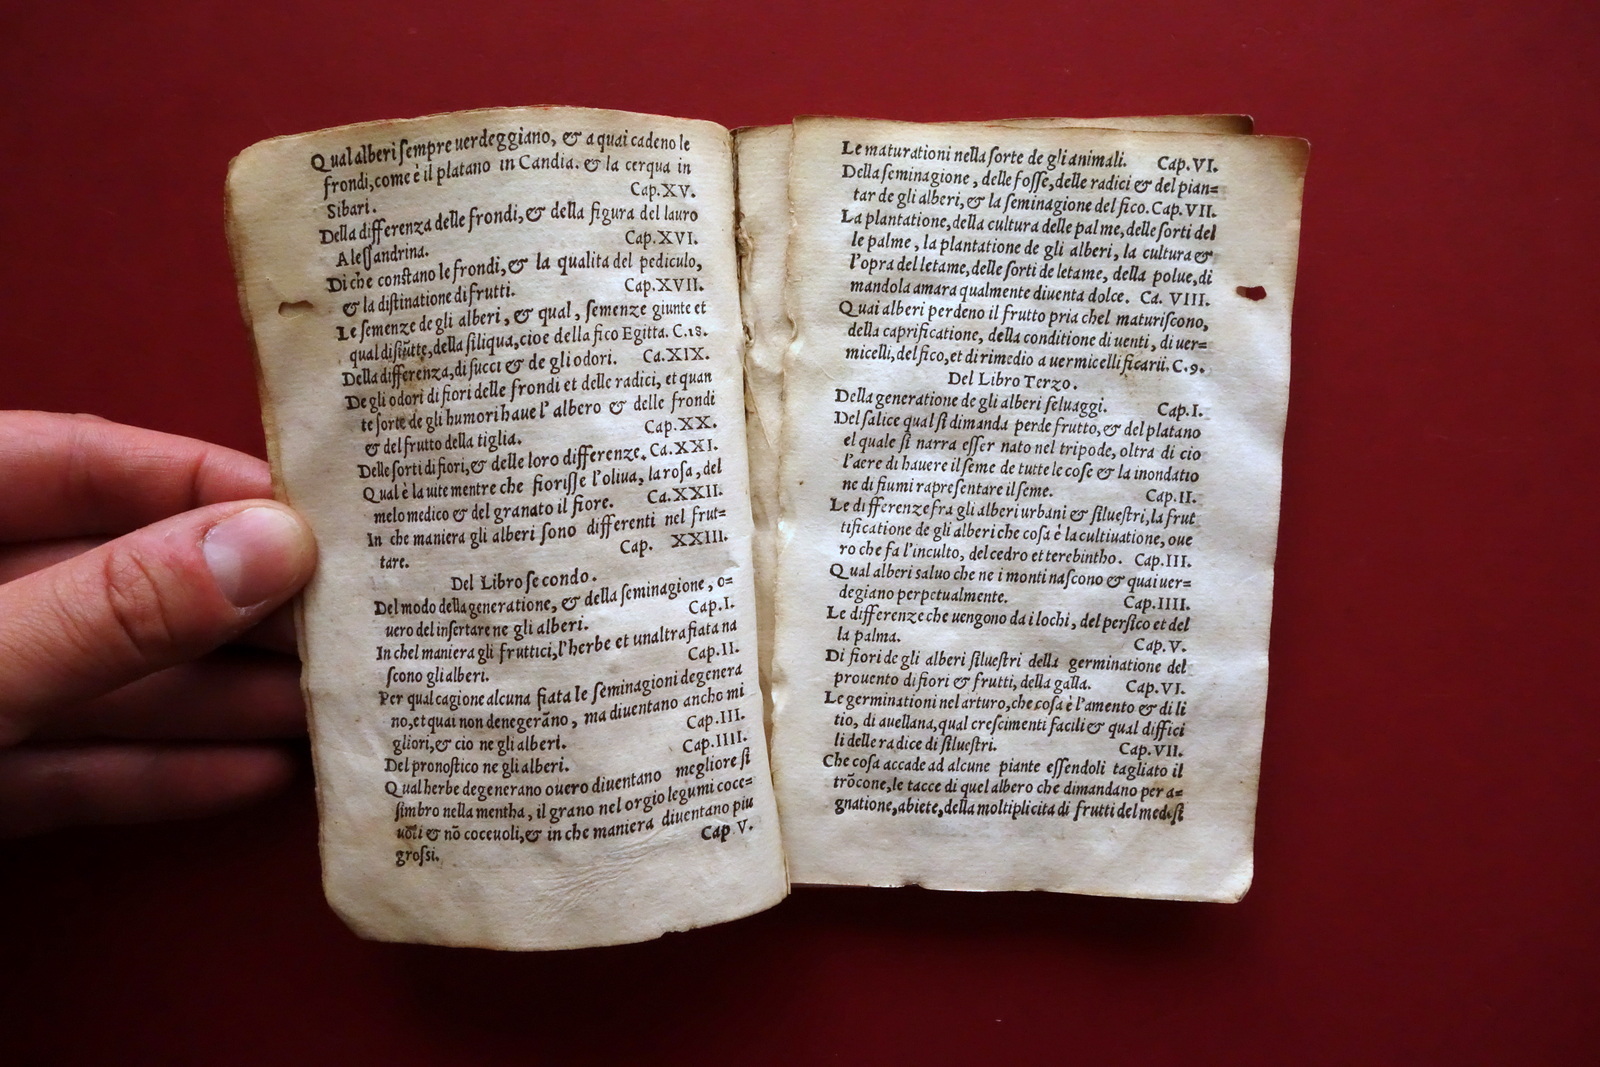 Qual alberi ſempre uerdeggiano, & a quai cadeno le
frondi, come è il platano in Candia. & la cerqua in
Sibari. Cap. XV.
Della differenza delle frondi, & della figura del lauro
Aleſſandrina. Cap. XVI.
Di che conſtano le frondi, & la qualita del pediculo,
& la diſtinatione di frutti. Cap. XVII.
Le ſemenze de gli alberi, & qual, ſemenze giunte et
qual diſiũtte, della ſiliqua, cioe della fico Egitta. C. 18.
Della differenza, di ſucci & de gli odori. Ca. XIX.
De gli odori di fiori delle frondi et delle radici, et quan
te ſorte de gli humori haue l'albero & delle frondi
& del frutto della tiglia. Cap. XX.
Delle ſorti di fiori, & delle loro differenze. Ca. XXI.
Qual è la uite mentre che fioriſſe l'oliua, la roſa, del
melo medico & del granato il fiore. Ca. XXII.
In che maniera gli alberi ſono differenti nel frut=
tare. Cap. XXIII.
Del Libro ſecondo.
Del modo della generatione, & della ſeminagione, o=
uero del inſertare ne gli alberi. Cap. I.
In chel maniera gli fruttici, l'herbe et unaltra fiata na
ſcono gli alberi. Cap. II.
Per qual cagione alcuna fiata le ſeminagioni degenera
no, et quai non denegerãno, ma diuentano ancho mi
gliori, & cio ne gli alberi. Cap. III.
Del pronoſtico ne gli alberi. Cap. IIII.
Qual herbe degenerano ouero diuentano megliore ſi
ſimbro nella mentha, il grano nel orgio legumi coce=
uoli & nõ coceuoli, & in che maniera diuentano piu
groſſi. Cap V.
Le maturationi nella ſorte de gli animali. Cap. VI.
Della ſeminagione, delle foſſe, delle radici & del pian=
tar de gli alberi, & la ſeminagione del fico. Cap. VII.
La plantatione, della cultura delle palme, delle ſorti del
le palme, la plantatione de gli alberi, la cultura &
l'opra del letame, delle ſorti de letame, della polue, di
mandola amara qualmente diuenta dolce. Ca. VIII.
Quai alberi perdeno il frutto pria chel maturiſcono,
della caprificatione, della conditione di uenti, di uer=
micelli, del fico, et di rimedio a uermicelli ficarii. C. 9.
Del Libro Terzo.
Della generatione de gli alberi ſeluaggi. Cap. I.
Del ſalice qual ſi dimanda perde frutto, & del platano
el quale ſi narra eſſer nato nel tripode, oltra di cio
l'aere di hauere il ſeme de tutte le coſe & la inondatio
ne di fiumi rapreſentare il ſeme. Cap. II.
Le differenze fra gli alberi urbani & ſilueſtri, la frut
tificatione de gli alberi che coſa è la cultiuatione, oue
ro che fa l'inculto, del cedro et terebintho. Cap. III.
Qual alberi ſaluo che ne i monti naſcono & quai uer=
degiano perpetualmente. Cap. IIII.
Le differenze che uengono da i lochi, del perſico et del
la palma. Cap. V.
Di fiori de gli alberi ſilueſtri della germinatione del
prouento di fiori & frutti, della galla. Cap. VI.
Le germinationi nel arturo, che coſa è l'amento & di li
tio, di auellana, qual creſcimenti facili & qual diffici
li delle radice di ſilueſtri. Cap. VII.
Che coſa accade ad alcune piante eſſendoli tagliato il
trõcone, le tacce di quel albero che dimandano per a=
gnatione, abiete, della moltiplicita di frutti del medeſi